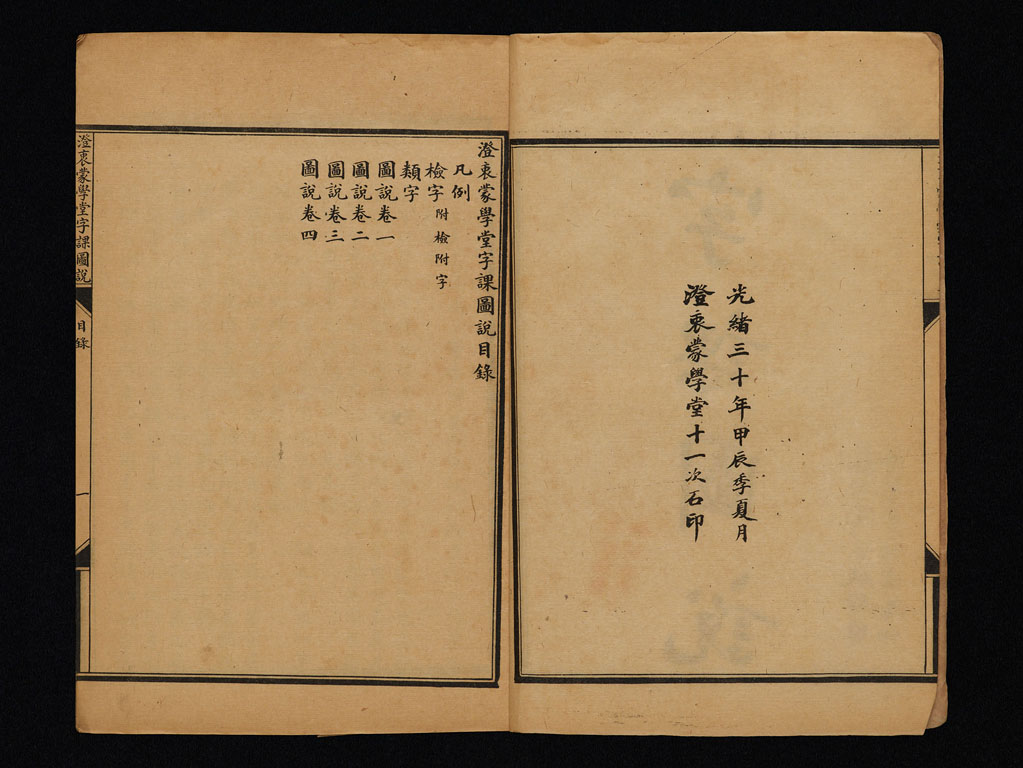 光緒三十年甲辰季夏月
澄衷蒙學堂十一次石印
澄衷蒙學堂字課圖說目錄
凡例
檢字 附檢附字
類字
圖說卷一
圖說卷二
圖說卷三
圖說卷四
澄衷蒙學堂字課圖說
目錄
一